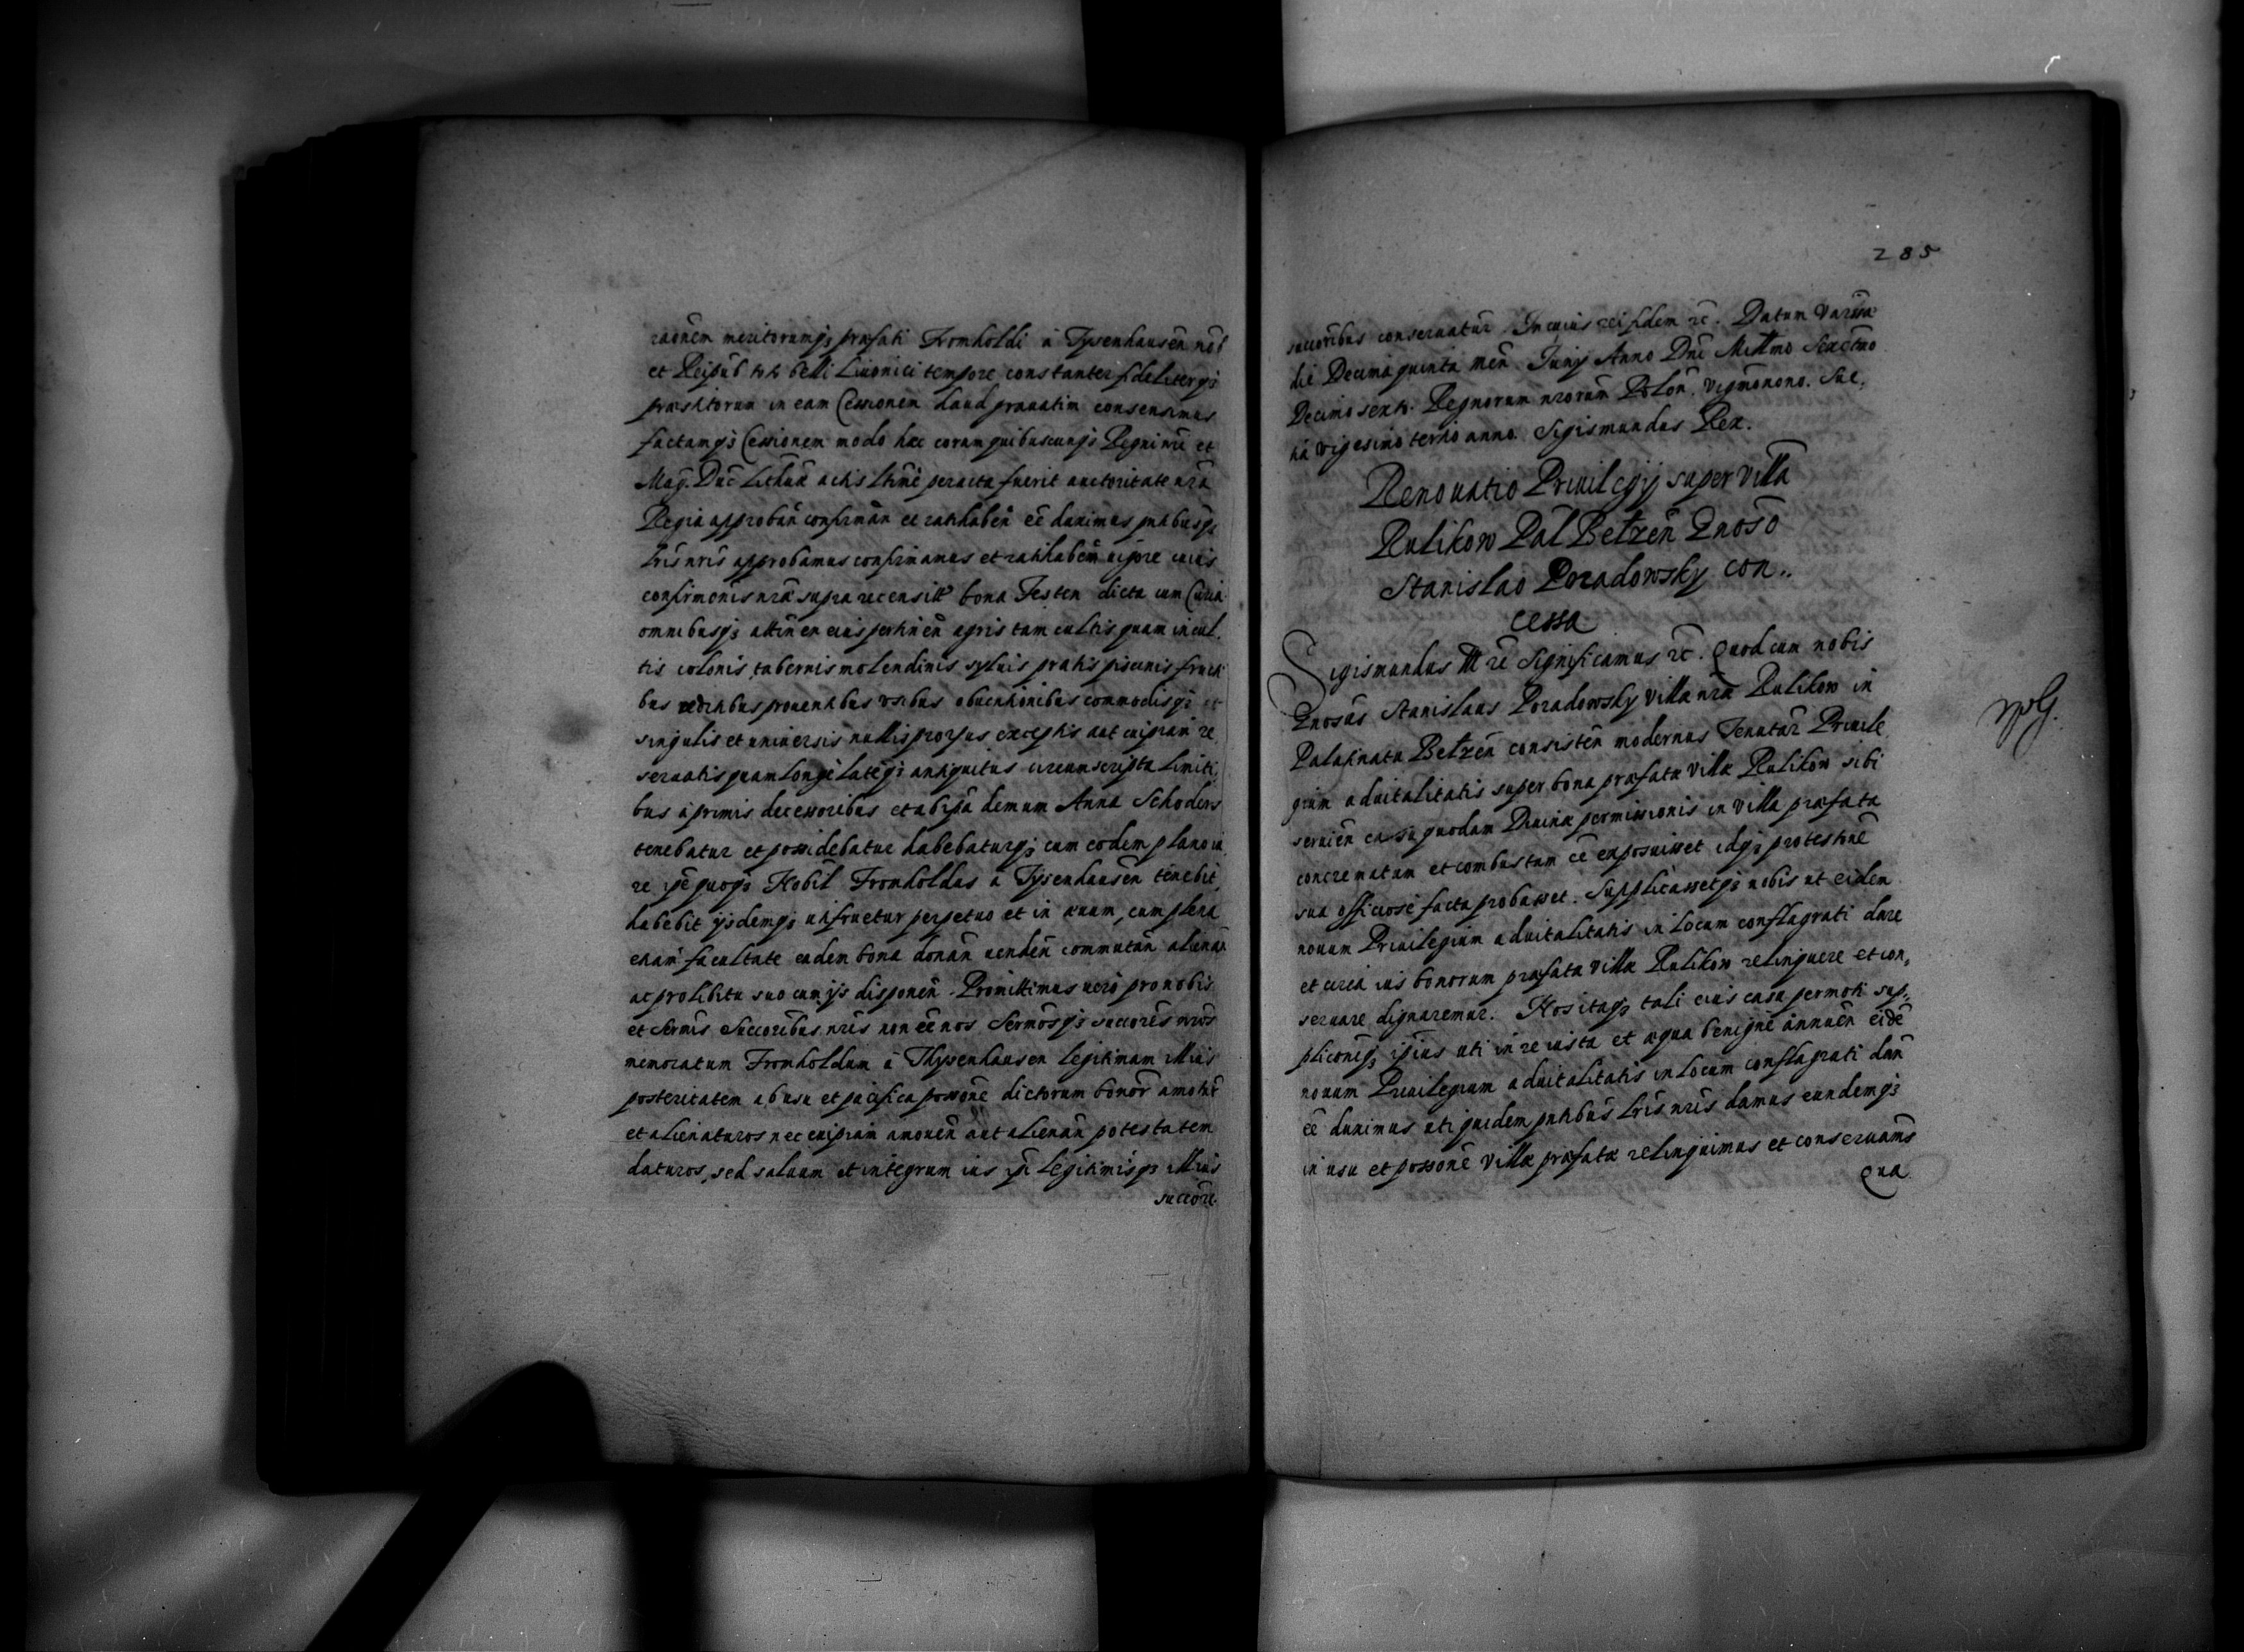 raōnem meritorumq; præfati Fromholdi à Tysenhausen nob
et Reipub toto belli Liuonici tempore constanter fideliterq;
præstitorum in eam Cessionem haud grauatim consensimus
factamq; Cessionem modo hæc coram quibuscunq; Regni nri et
Mag. Duc Lithuæ actis ltime peracta fuerit auctoritate nra
Regia approban confirman et ratihaben ee duximus pntibusq;
lris nris approbamus confirmamus et ratihabem uigore cuius
confirmonis nræ supra recensita bona Festen dicta cum Curia
omnibusq; attinen eius pertinen agris tam cultis quam incul,
tis colonis, tabernis molendinis syluis pratis piscinis fructi
bus reditibus prouentibus usibus obuentionibus commodisq; et
singulis et uniuersis nullis prorsus exceptis aut cuipiam re,
seruatis quam longe lateq; antiquitus circumscripta limiti,
bus a primis decessoribus et ab ipsa demum Anna Schoders
tenebatur et possidebatur habebaturq; cum eodem pleno iu,
re ipse quoq; Nobil Fromholdus à Tysenhausen tenebit,
habebit ijsdemq; utifruetur perpetuo et in æuum, cum plena
etiam facultate eadem bona donan uenden commutan alienan
ac pro libitu suo cum ijs disponen. Promittimus uero pro nobis
et Sermis Succoribus nris non ee nos Sermosq; succores nros
memoratum Fromholdum à Thysenhausen legitimam illius
posteritatem ab usu et pacifica possone dictorum bonor amotur
et alienaturos nec cuipiam amouen aut alienan potestatem
daturos, sed saluum et integrum ius ipsi legitimisq; illius
succore.
285
succoribus conseruatur. In cuius rei fidem rc. Datum Varsa
die Decima quinta men Iunij Anno Dni Millmo Sexctmo
Decimo sexto. Regnorum nrorum Polon. vigmonono. Sue,
tiæ vigesimo tertio anno. Sigismundus Rex.
Renouatio Priuilegij super villa
Rulikow Pal Betzen Gnoso
Stanislao Poradowsky con..
cessa
Sigismundus III rc Significamus rc. Quod cum nobis
Gnosus Stanislaus Poradowsky villæ nræ Rulikow in
Palatinatu Betzen consisten modernus Tenutar Priuile,
gium aduitalitatis super bona præfatæ villæ Rulikow sibi
seruien casu quodam Diuinæ permissionis in villa præfata
concrematum et combustum ee exposuisset idq; protestne
sua officiose facta probasset. Supplicassetq; nobis ut eidem
nouum Priuilegium aduitalitatis in locum conflagrati dare
et circa ius bonorum præfatæ villæ Rulikow relinquere et con,
seruare dignaremur. Nos itaq; tali eius casu permoti sup,,
pliconiq; ipius uti in re iusta et æqua benigne annuen eide
nouum Priuilegium aduitalitatis in locum conflagrati dan
ee duximus uti quidem pntibus lris nris damus eundemq;
in usu et possone villæ præfatæ relinquimus et conseruams
Qua